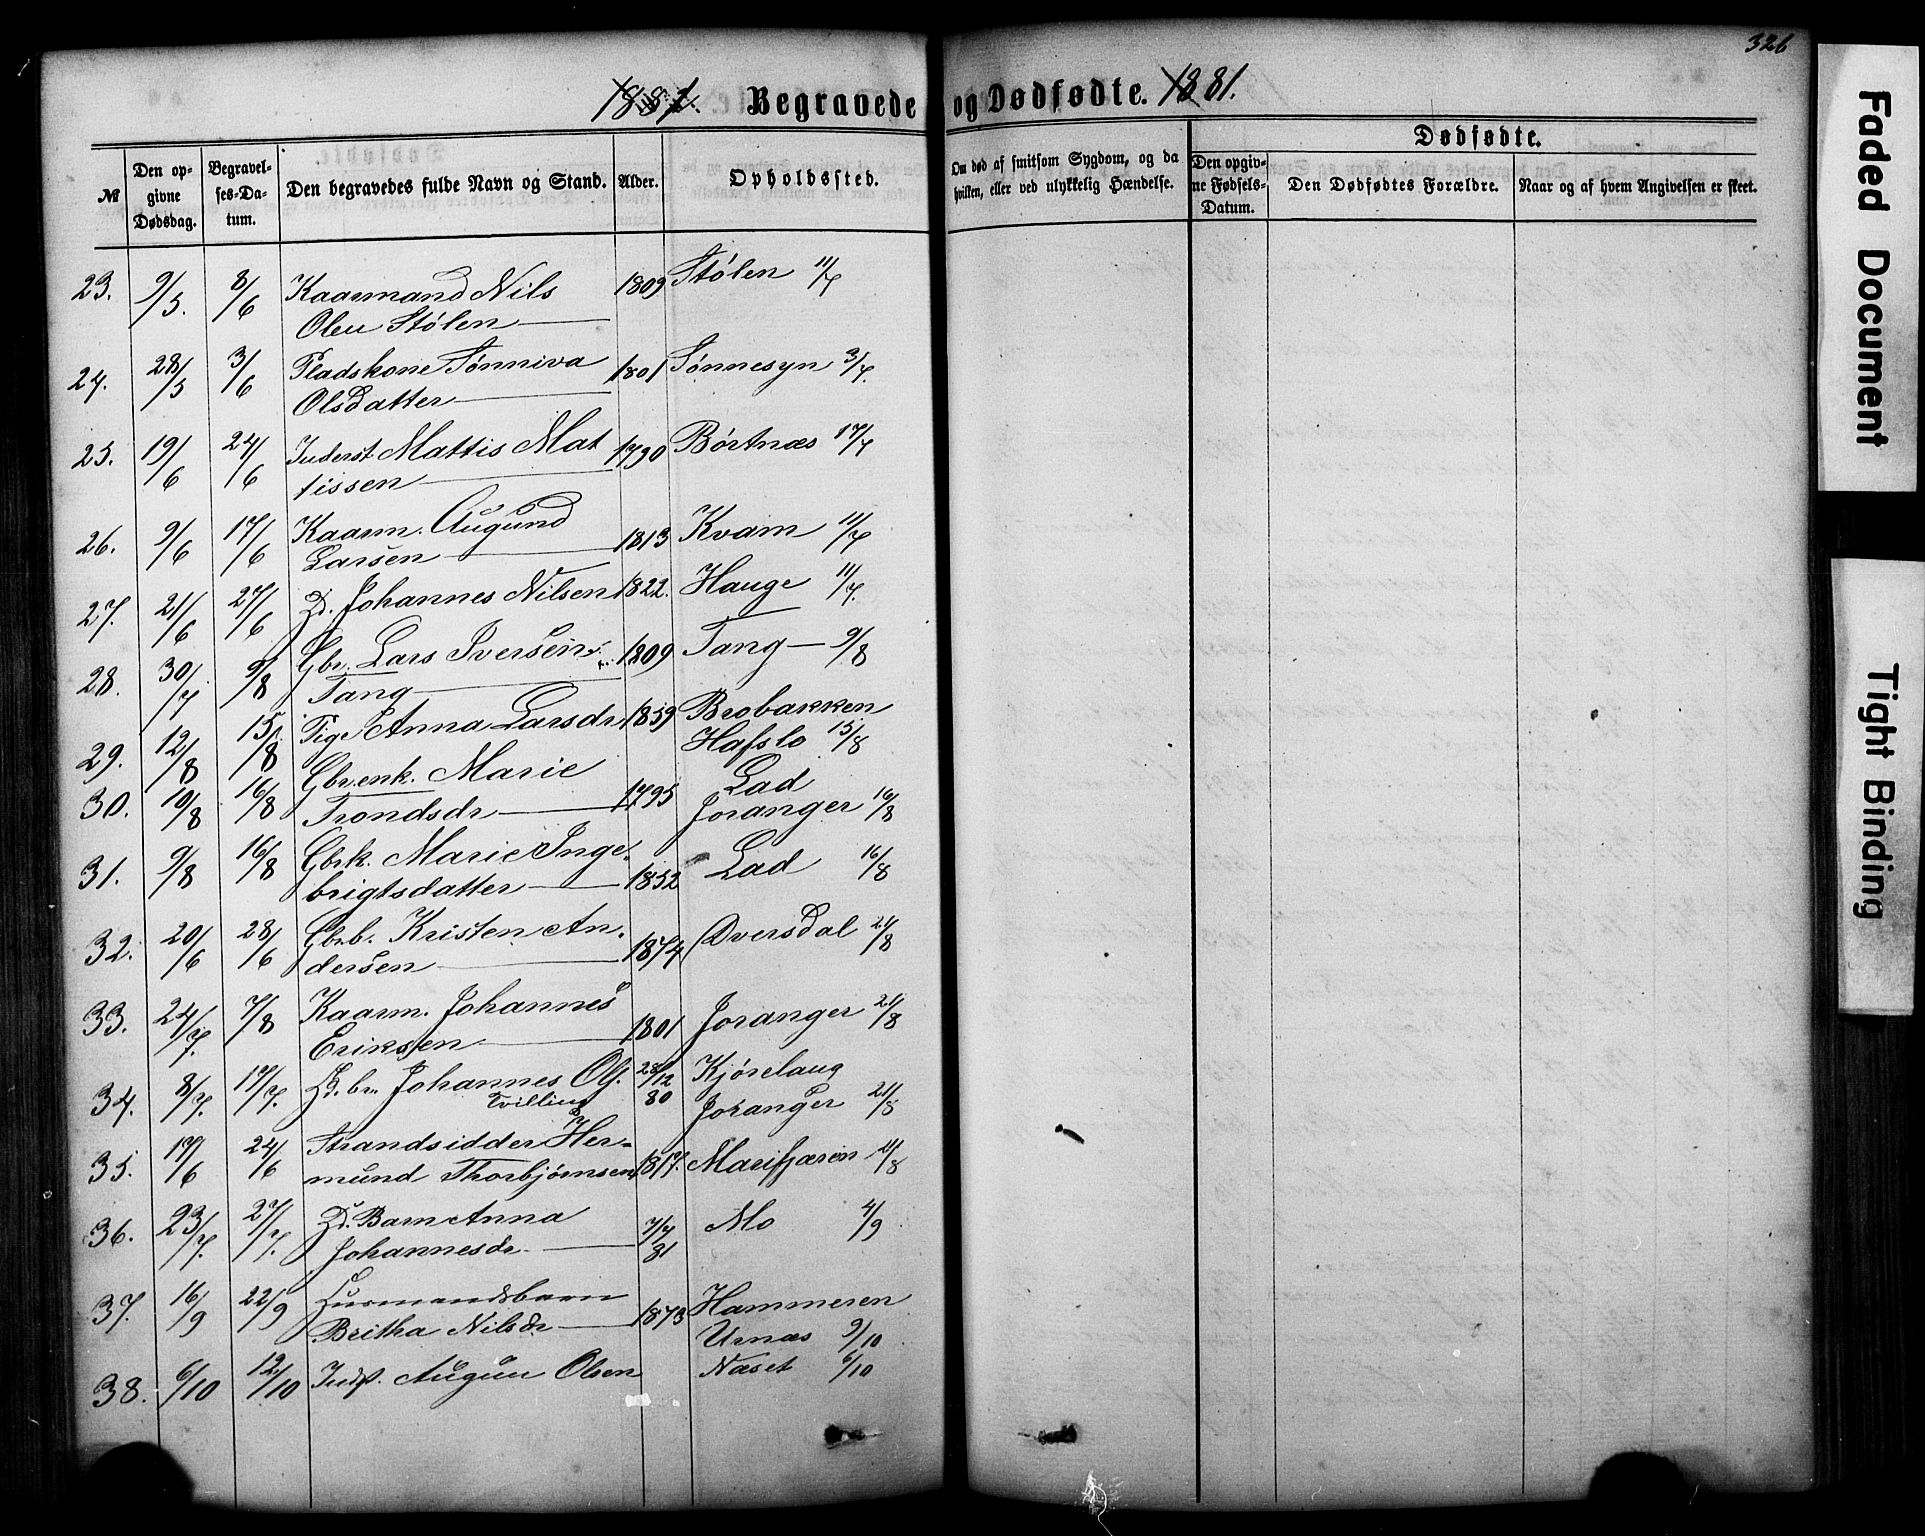 326
1881. Begravede og Dødfødte. 1881.
Dødfødte.
№ Den opgivne Dødsdag. Begravelses-Datum. Den begravedes fulde Navn og Stand. Alder. Opholdssted. Om død af smitsom Sygdom, og da hvilken, eller ved ulykkelig Hændelse. Den opgivne Fødsels-Datum. Den Dødfødtes Forældre. Naar og af hvem Angivelsen er skeet.
23. 9/5. 8/6 Kaarmand Nils 1809 Stølen 11/7
Olsen Stølen
24. 28/5 3/6 Pladskone Sønniva 1801 Sønnesyn 3/7.
Olsdatter
25. 19/6 24/6 Inderst Mattis Mat 1790 Børtnæs 17/7
tissen
26. 9/6 17/6 Kaarm. Augund 1813 Kvam 11/7
Larsen
27. 21/6 27/6 Zd. Johannes Nilsen 1822. Hauge 11/7.
28. 30/7 9/8 Gbr. Lars Iversen 1809 Tang 9/8
Tang
29. 12/8 15/8 Pige Anna Larsdr 1859 Brobakken
Hafslo 15/8
30. 10/8 16/8 Gbrenk. Marie Lad
Trondsdr 1795 Joranger 16/8
31. 9/8 16/8 Gbrk. Marie Inge- 1852 Lad 16/8
brigtsdatter
32. 20/6 28/6 Gbrb. Kristen An- 1874 Dversdal 21/8
dersen
33. 24/7. 7/8 Kaarm. Johannes 1801 Joranger 21/8
Eriksen
34. 8/7. 17/7. Zd. br. Johannes Ols. 28/12 80 Kjørelaug
Tvilling Joranger 21/8
35. 17/6 24/6 Strandsidder Her-
mund Thorbjørnsen 1817. Marifjæren 21/8
36. 23/7. 27/7. Zd. Barn Anna 7/7 81 Mo 4/9
Johannesdr.
37. 16/9 22/9 Husmandsbarn 1873 Hammeren
Britha Nilsdr Urnæs 9/10
38. 6/10 12/10 Indst. Augun Olsen Næset 6/10
Faded Document
Tight Binding